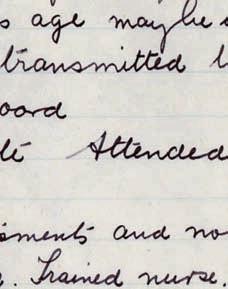 s age maybe
transmitted
oard
Attended
sments and no
. Trained nurse.